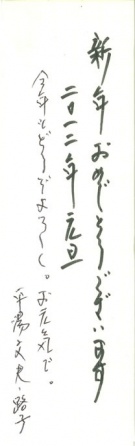 新年おめでとうございます
二〇一二年元旦
今年もどうぞよろしく。お元気で。
平湯文夫・路子